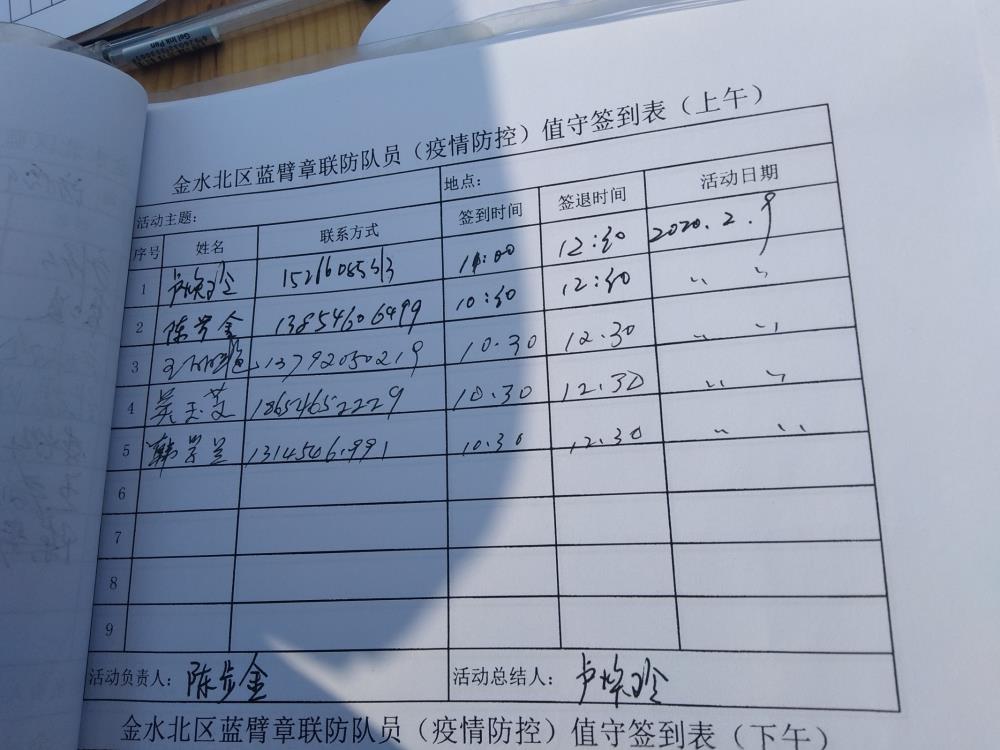 Gel Ink Pen
金水北区蓝臂章联防队员（疫情防控）值守签到表（上午）
活动主题： 地点：
序号 姓名 联系方式 签到时间 签退时间 活动日期
1 卢焕玲 12:30 2020.2.9
2 陈步金 13854606499 10:30 12:30 〃
3 13792050219 10.30 12.30 〃
4 吴玉芝 18654652229 10.30 12.30 〃
5 韩 兰 10.30 12.30 〃
6
7
8
9
活动负责人：陈步金 活动总结人：卢焕玲
金水北区蓝臂章联防队员（疫情防控）值守签到表（下午）